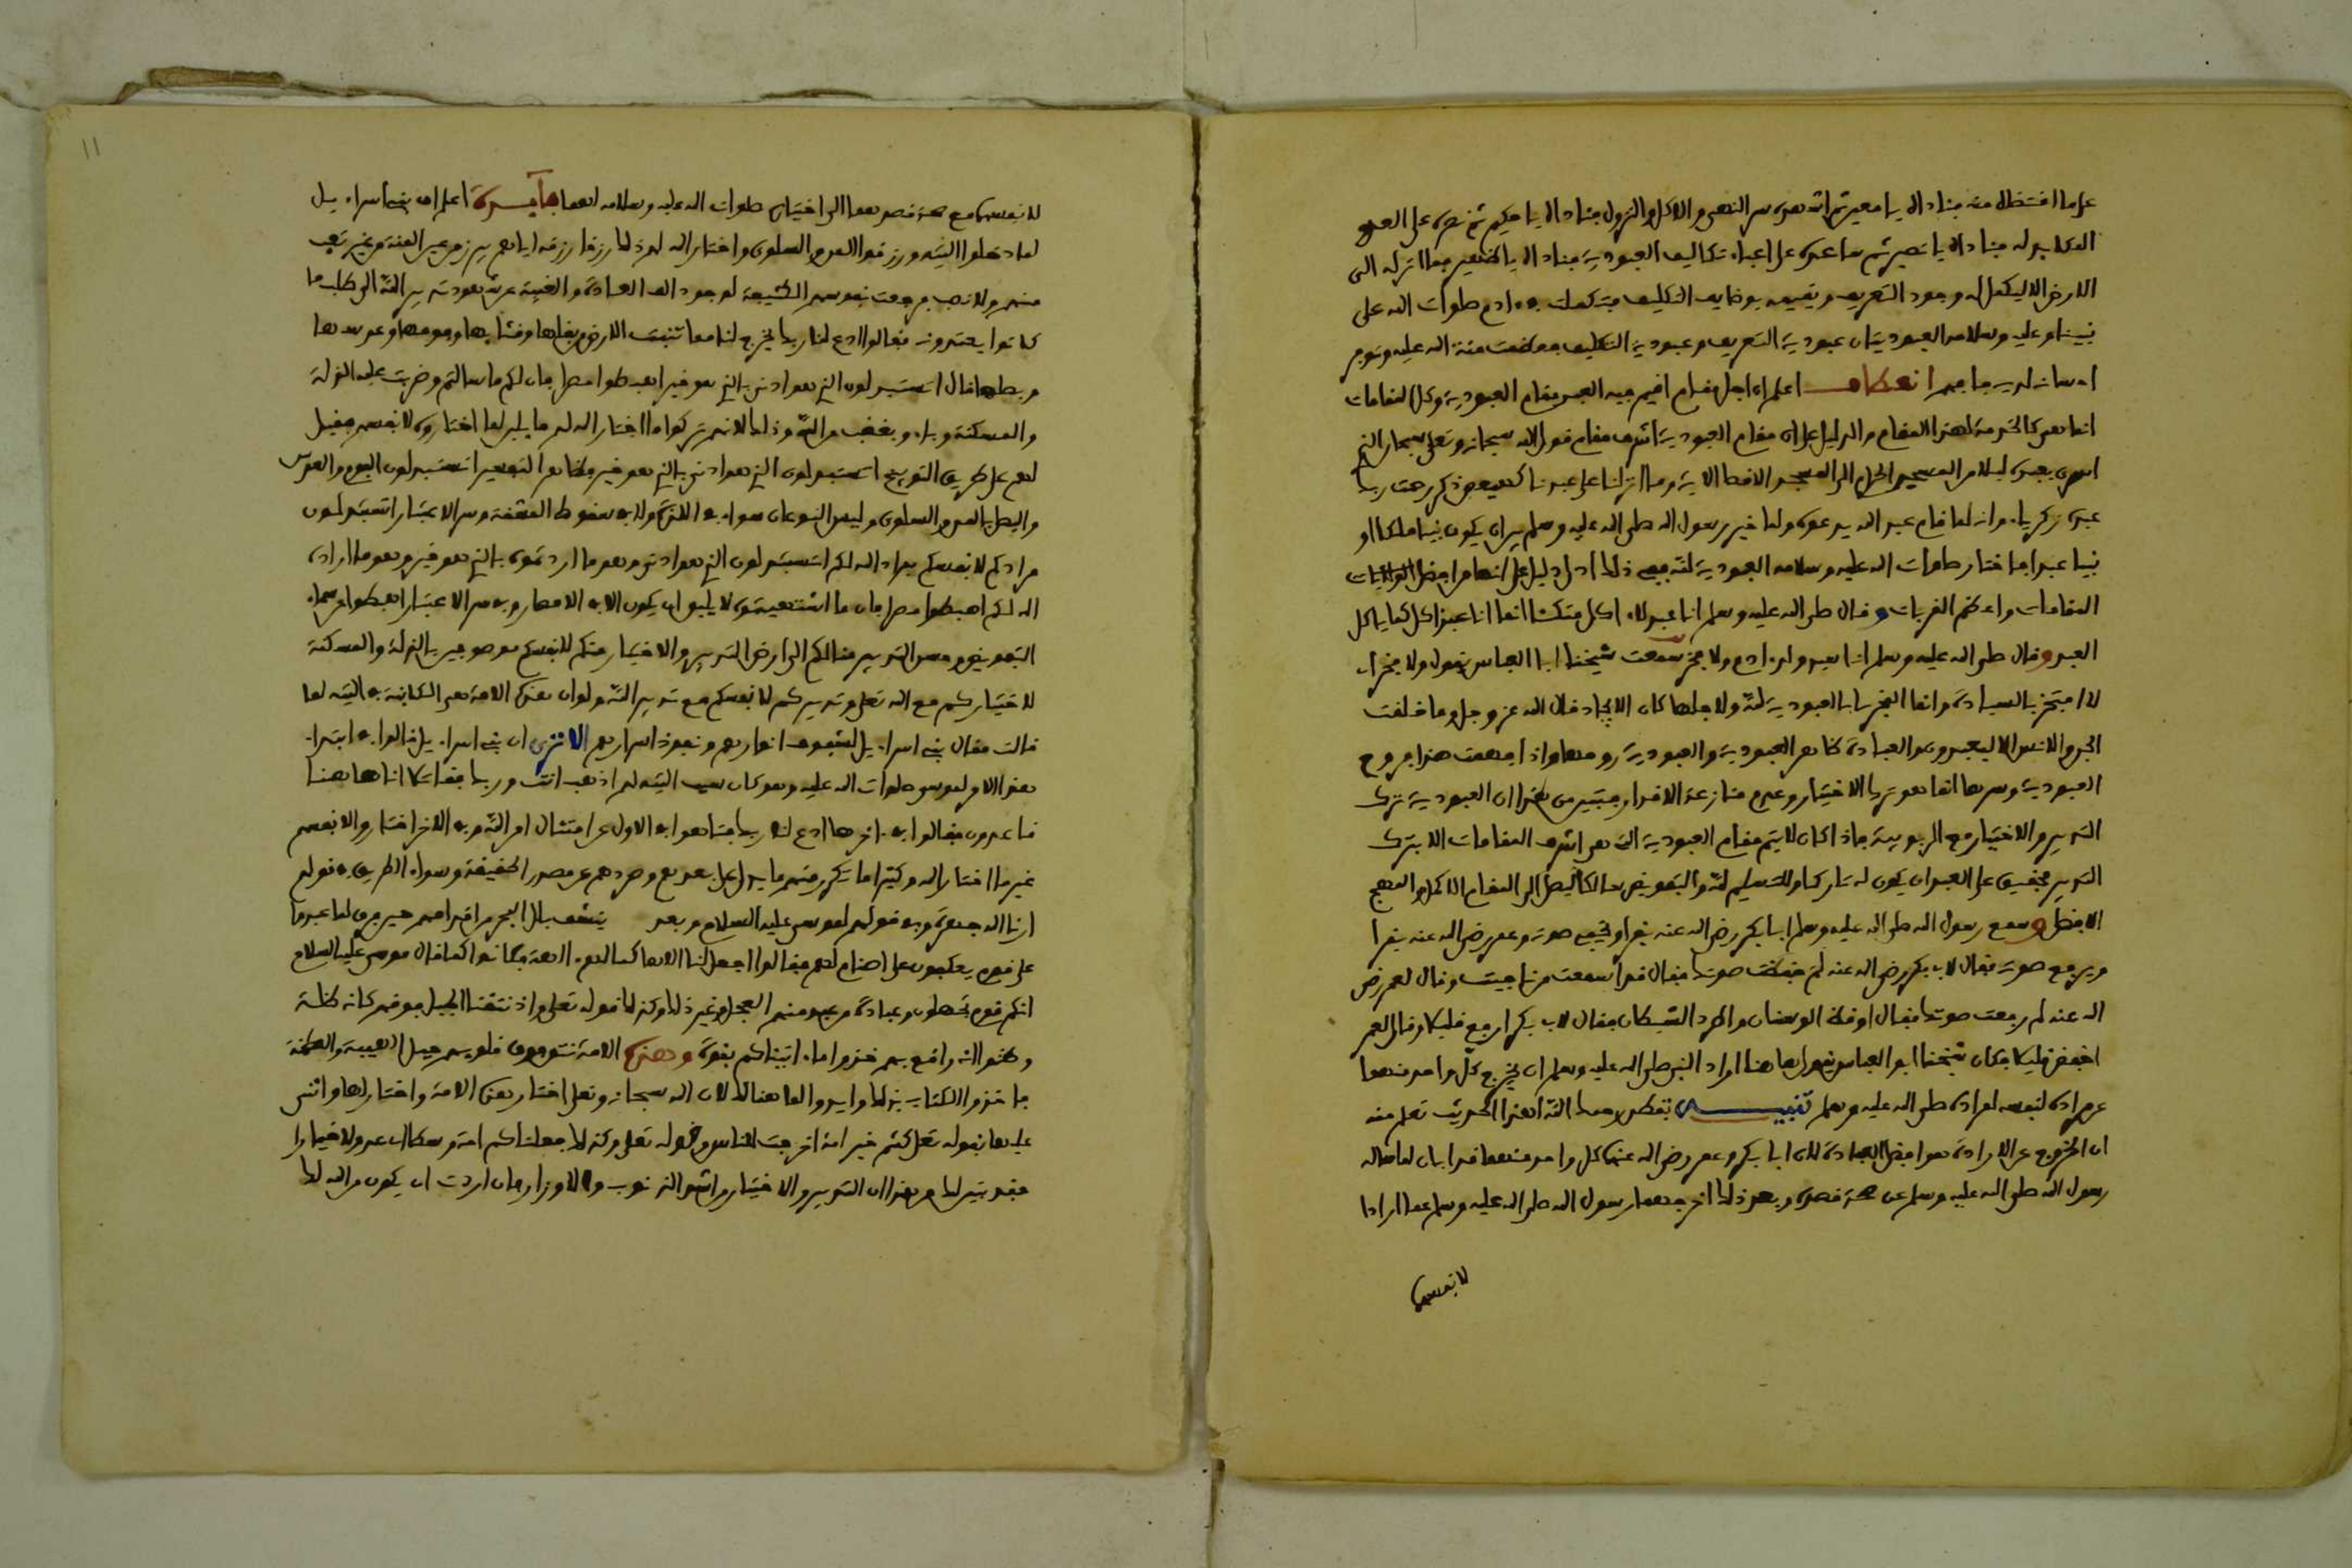 على ما اقتضاه منه فناداه يا معين ثم اشهده سر النهي والاكل والنزول فناداه يا حكيم ثم نصره على العدو
المكايد له فناداه يا نصير ثم ساعده على اعباء تكاليف العبودية فناداه يا ظهير فما انزله الى
الارض الا ليكمل له وجود التعريف ويقيمه بوظايف التكليف فتكملت في ءادم صلوات الله على
نبينا وعليه وسلامه العبوديتان عبودية التعريف وعبودية التكليف فعظمت منة الله عليه وتوفر
احسانه لديه فافهم انعطاف اعلم ان اجل مقام اقيم فيه العبد مقام العبودية وكل المقامات
انما هي كالخدمة لهذا المقام والدليل على ان مقام العبودية اشرف مقام قول الله سبحانه وتعلى سبحان الذي
اسرى بعبده ليلا من المسجد الحرام الى المسجد الاقصا الاية وما انزلنا على عبدنا كهيعص ذكر رحمت ربك
عبده زكرياء وانه لما قام عبد الله يدعوه ولما خير رسول الله صلى الله عليه وسلم بين ان يكون نبيا ملكا او
نبيا عبدا فاختار صلوات الله عليه وسلامه العبودية لله ففي ذلك ادل دليل على انها من افضل
المقامات واعظم القربات وقال صلى الله عليه وسلم انما انا عبد لا ءاكل متكئا انما انا عبد ءاكل كما ياكل
العبد وقال صلى الله عليه وسلم انا سيد ولد ءادم ولا فخر سمعت شيخنا ابا العباس يقول ولا فخر اي
لا افتخر بالسيادة وانما الفخر لي بالعبودية لله ولاجلها كان الايجاد قال الله عز وجل وما خلقت
الجن والانس الا ليعبدون والعبادة ظاهر العبودية والعبودية روحها واذا فهمت هذا فروح
العبودية وسرها انما هو ترك الاختيار وعدم منازعة الاقدار فتبين من هذا ان العبودية ترك
التدبير والاختيار مع الربوبية فاذا كان لا يتم مقام العبودية الذي هو اشرف المقامات الا بترك
التدبير فحقيق على العبد ان يكون له تاركا وللتسليم لله والتفويض سالكا ليصل الى المقام الاكمل والمنهج
الافضل وسمع رسول الله صلى الله عليه وسلم ابا بكر رضي الله عنه يقرا ويخفي صوته وعمر رضي الله عنه يقرا
ويرفع صوته فقال لابي بكر رضي الله عنه لم خفضت صوتك فقال قد اسمعت من ناجيت وقال لعمر رضي
الله عنه لم رفعت صوتك فقال اوقظ الوسنان واطرد الشيطان فقال لابي بكر ارفع قليلا وقال لعمر
اخفض قليلا فكان شيخنا ابو العباس يقول هاهنا اراد النبي صلى الله عليه وسلم ان يخرج كل واحد منهما
عن مراده لنفسه لمراده صلى الله عليه وسلم تنبيه تفطن رحمك الله لهذا الحديث تعلم منه
ان الخروج عن الارادة هو افضل العبادة لان ابا بكر وعمر رضي الله عنهما كل واحد منهما قد ابان لما ساله
رسول الله صلى الله عليه وسلم عن صحة قصده وبعد ذلك اخرجهما رسول الله صلى الله عليه وسلم عما ارادا
لانفسهما
11
لانفسهما مع صحة قصدهما الى اختيار صلوات الله عليه وسلامه لهما فايدة اعلم ان بني اسراءيل
لما دخلوا التيه ورزقوا المن والسلوى واختار الله لهم ذلك رزقا رزقه اياهم يبرز من عين المنة من غير تعب
منهم ولا نصب فرجعت نفوسهم الكثيفة لوجود الف العادة والغيبة عن شهود تدبير الله الى طلب ما
كانوا يعتدونه فقالوا ادع لنا ربك يخرج لنا مما تنبت الارض من بقلها وقثايها وفومها وعدسها
وبصلها قال اتستبدلون الذي هو ادنى بالذي هو خير اهبطوا مصرا فان لكم ما سالتم وضربت عليهم الذلة
والمسكنة وباءو بغضب من الله وذلك لانهم تركوا ما اختار الله لهم مايلين لما اختاروه لانفسهم فقيل
لهم على طريق التوبيخ اتستبدلون الذي هو ادنى بالذي هو خير فظاهر التفسير اتستبدلون الثوم والعدس
والبصل بالمن والسلوى وليس النوعان سواء في اللذة ولا في سقوط المشقة وسر الاعتبار اتستبدلون
مرادكم لانفسكم بمراد الله لكم اتستبدلون الذي هو ادنى وهو ما اردتموه بالذي هو خير وهو ما اراده
الله لكم اهبطوا مصرا فان ما اشتهيتموه لا يليق ان يكون الا في الامصار وفي سر الاعتبار اهبطوا من سماء
التفويض وحسن التدبير منا لكم الى ارض التدبير والاختيار منكم لانفسكم موصوفين بالذلة والمسكنة
لاختياركم مع الله تعلى وتدبيركم لانفسكم مع تدبير الله ولو ان هذه الامة هي الكاينة في التيه لما
قالت مقال بني اسراءيل لشفوف انوارهم ونفوذ اسرارهم الا ترى ان بني اسراءيل قالوا في ابتداء
هذا الامر لموسى صلوات الله عليه وهو كان سبب التيه لهم اذهب انت وربك فقاتلا انا هاهنا
قاعدون فقالوا في ءاخرها ادع لنا ربك فتابوا في الاول عن امتثال امر الله وفي الاخر اختاروا لانفسهم
غير ما اختار الله وكثيرا ما تكرر منهم ما يدل على بعدهم وطردهم عن مصدر الحقيقة وسواء الطريق في قولهم
ارنا الله جهرة وفي قولهم لموسى عليه السلام وبعد ينشف بلل البحر من اقدامهم حين فرق لما عبروا
على قوم يعكفون على اصنام لهم فقالوا اجعل لنا الاها كما لهم ءالهة فكانوا كما قال موسى عليه السلام
انكم قوم تجهلون وعبادة من عبد منهم العجل وغير ذلك وكذلك قوله تعلى واذ نتقنا الجبل فوقهم كانه ظلة
وظنوا انه واقع بهم خذوا ما ءاتيناكم بقوة وهذه الامة نتق فوق قلوبهم جبل الهيبة والعظمة
فاخذوا الكتاب بذلك وايدوا لما هنالك لان الله سبحانه وتعلى اختار هذه الامة واختار لها واثنى
عليها بقوله تعلى كنتم خير امة اخرجت للناس وقوله تعلى وكذلك جعلناكم امة وسطا اي عدولا خيارا
فقد تبين لك من هذا ان التدبير والاختيار من اشد الذنوب والاوزار فان اردت ان يكون من الله لك